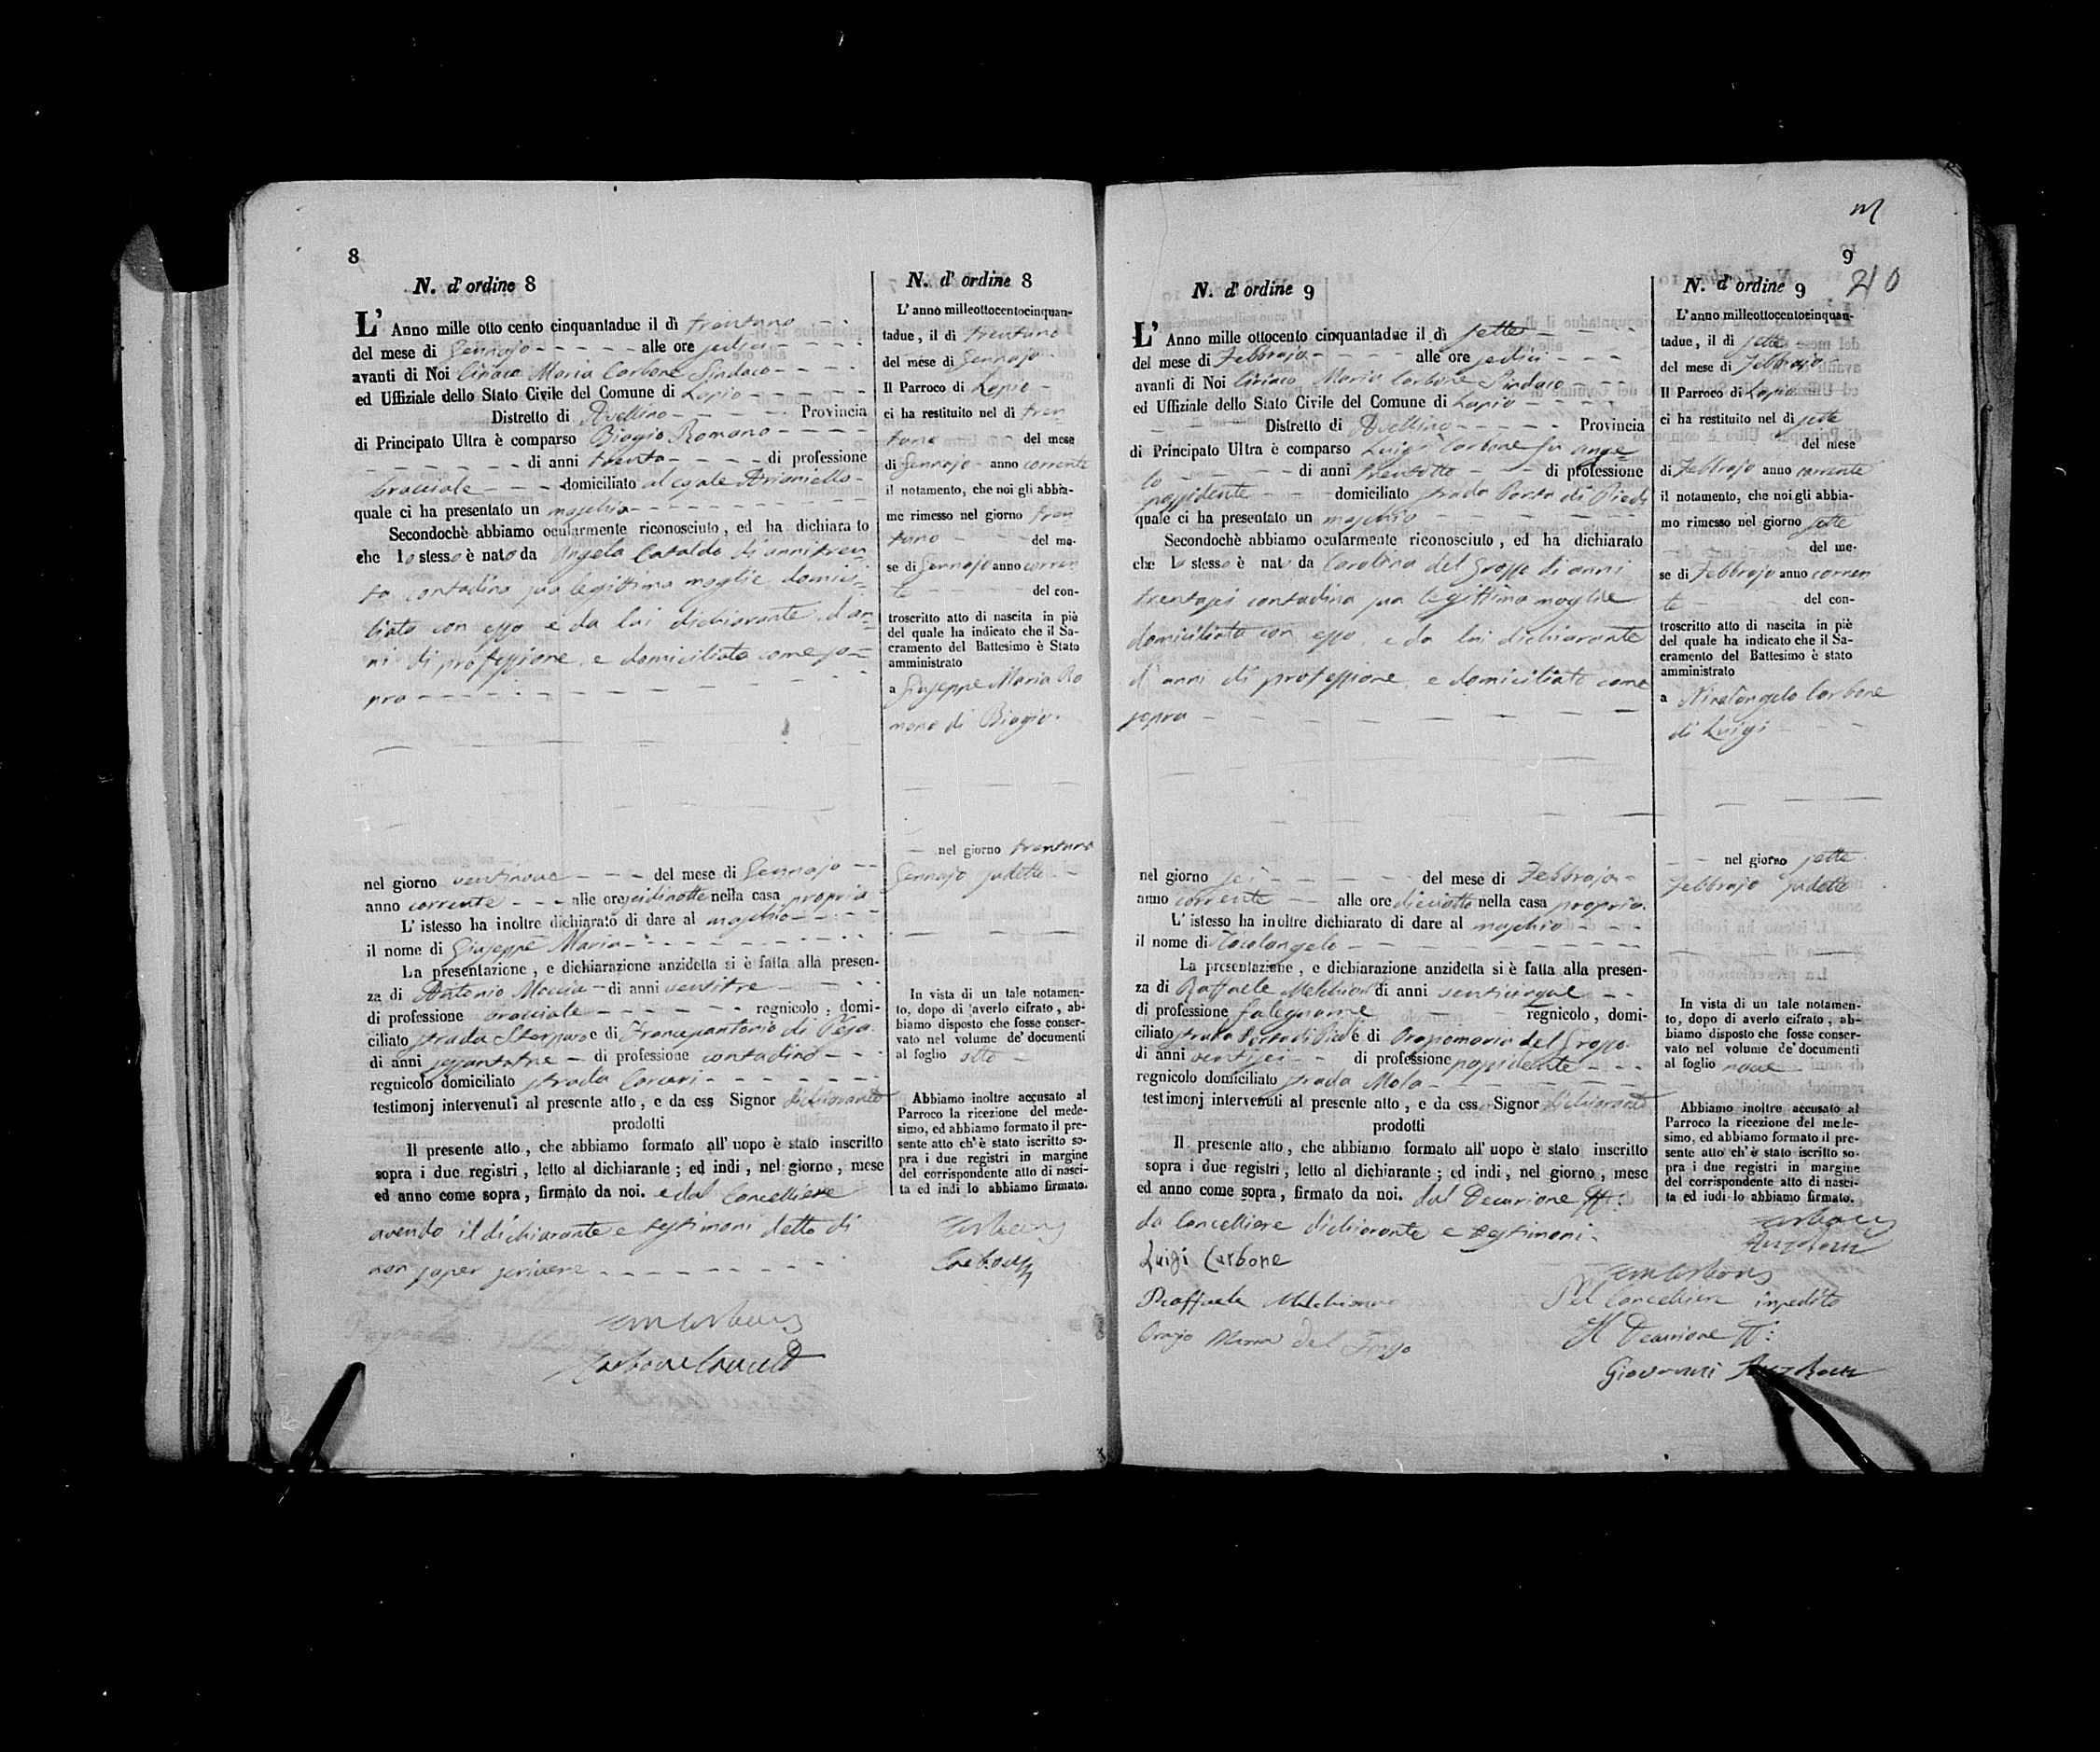 8
N. d'ordine 8
L' Anno mille otto cento cinquantadue il dì trentuno
del mese di Gennajo alle ore sedici
avanti di Noi Ciriaco Maria Carbone Sindaco
ed Uffiziale dello Stato Civile del Comune di Lapio
Distretto di Avellino Provincia
di Principato Ultra è comparso Biagio Romano
di anni trenta di professione
bracciale domiciliato al Arianiello
quale ci ha presentato un maschio
Secondochè abbiamo ocularmente riconosciuto, ed ha dichiarato
che lo stesso è nato da Angela Cataldo di anni tren
ta contadina sua legittima moglie domici=
liata con esso e da lui dichiarante d'an=
ni di professione e domiciliato come so=
pra
nel giorno ventinove del mese di Gennajo
anno corrente alle ore nella casa propria
L'istesso ha inoltre dichiarato di dare al maschio
il nome di Giuseppe Maria
La presentazione, e dichiarazione anzidetta si è fatta alla presen-
za di Antonio Moccia di anni ventitre
di professione bracciale regnicolo, domi-
ciliato strada e di Francescantonio di
di anni sessantatre di professione contadino
regnicolo domiciliato strada Carcari
testimonj intervenuti al presente atto, e da ess Signor dichiarante
prodotti
Il presente atto, che abbiamo formato all'uopo è stato inscritto
sopra i due registri, letto al dichiarante; ed indi, nel giorno, mese
ed anno come sopra, firmato da noi. e dal Cancelliere
avendo il dichiarante e testimoni detto di
non saper scrivere
N. d'ordine 8
L'anno milleottocentocinquan-
tadue, il dì trentuno
del mese di Gennajo
Il Parroco di Lapio
ci ha restituito nel dì tren
tuno del mese
di Gennajo anno corrente
il notamento, che noi gli abbia-
mo rimesso nel giorno tren
tuno del me-
se di Gennajo anno corren
te del con-
troscritto atto di nascita in piè
del quale ha indicato che il Sa-
cramento del Battesimo è Stato
amministrato
a Giuseppe Maria Ro
mano di Biagio.
nel giorno trentuno
Gennajo sudetto
In vista di un tale notamen-
to, dopo di averlo cifrato, ab-
biamo disposto che fosse conser-
vato nel volume de' documenti
al foglio otto
Abbiamo inoltre accusato al
Parroco la ricezione del mede-
simo, ed abbiamo formato il pre-
sente atto ch'è stato iscritto so-
pra i due registri in margine
del corrispondente atto di nasci-
ta ed indi lo abbiamo firmato.
9
210
N. d'ordine 9
L' Anno mille ottocento cinquantadue il dì sette
del mese di Febbrajo alle ore sedici
avanti di Noi Ciriaco Maria Carbone Sindaco
ed Uffiziale dello Stato Civile del Comune di Lapio
Distretto di Avellino Provincia
di Principato Ultra è comparso Luigi Carbone fu Ange
lo di anni trentotto di professione
possidente domiciliato strada Porta di Piedi
quale ci ha presentato un maschio
Secondochè abbiamo ocularmente riconosciuto, ed ha dichiarato
che lo stesso è nato da Carolina del Grosso di anni
trentasei contadina sua legittima moglie
domiciliata con esso e da lui dichiarante
d'anni di professione e domiciliato come
sopra
nel giorno sei del mese di Febbrajo
anno corrente alle ore dieciotto nella casa propria
L'istesso ha inoltre dichiarato di dare al maschio
il nome di
La presentazione, e dichiarazione anzidetta si è fatta alla presen-
za di Raffaele di anni venticinque
di professione falegname regnicolo, domi-
ciliato strada Porta di e di del Grosso
di anni ventisei di professione possidente
regnicolo domiciliato strada Mola
testimonj intervenuti al presente atto, e da ess Signor dichiarante
prodotti
Il presente atto, che abbiamo formato all'uopo è stato inscritto
sopra i due registri, letto al dichiarante; ed indi, nel giorno, mese
ed anno come sopra, firmato da noi. dal Decurione ff:
da Cancelliere dichiarante e testimoni
Luigi Carbone
Raffaele
Maria del
Pel Cancelliere impedito
Il Decurione ff:
Giovanni
N. d'ordine 9
L'anno milleottocentocinquan-
tadue, il dì sette
del mese di Febbrajo
Il Parroco di Lapio
ci ha restituito nel dì sette
del mese
di Febbrajo anno corrente
il notamento, che noi gli abbia-
mo rimesso nel giorno sette
del me-
se di Febbrajo anno corren
te del con-
troscritto atto di nascita in piè
del quale ha indicato che il Sa-
cramento del Battesimo è stato
amministrato
a Carbone
di Luigi
nel giorno sette
Febbrajo sudetto
In vista di un tale notamen-
to, dopo di averlo cifrato, ab-
biamo disposto che fosse conser-
vato nel volume de' documenti
al foglio nove
Abbiamo inoltre accusato al
Parroco la ricezione del mede-
simo, ed abbiamo formato il pre-
sente atto ch'è stato iscritto so-
pra i due registri in margine
del corrispondente atto di nasci-
ta ed indi lo abbiamo firmato.